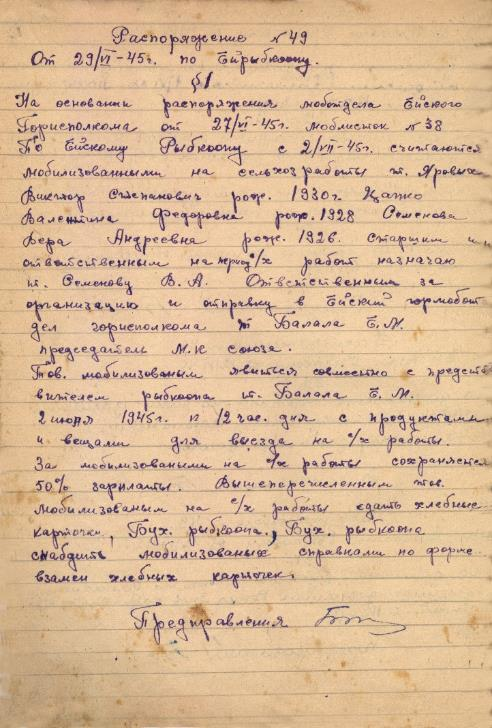 Распоряжение №49
От 29/VI-45г. по Ейрыбкоопу.
§1
На основании распоряжения моботдела Ейского
Горисполкома от 27/VI-45г. моблисток №38
По Ейскому Рыбкоопу с 2/VII-45г. считаются
мобилизованными на сельхозработы т. Яровых
Виктор Степанович рож. 1930г.
Валентина Федоровна рож. 1928 Семенова
Вера Андреевна рож. 1926. старшим и
ответственным на период с/х работ назначаю
т. Семенову В. А. Ответственным за
организацию и отправку в Ейский гормобот
дел горисполкома т Балала Е. М.
председатель М.К союза.
Тов. мобилизованым явиться совместно с предста
вителем рыбкоопа т. Балала Е. М.
2 июля 1945г. к 12 час. дня с продуктами
и вещами для выезда на с/х работы.
За мобилизоваными на с/х работы сохраняется
50% зарплаты. Вышеперечисленным тов.
мобилизованым на с/х работы сдать хлебные
карточки, Бух. рыбкоопа, Бух. рыбкоопа
снабдить мобилизованых справками по форме
взамен хлебных карточек.
Предправления